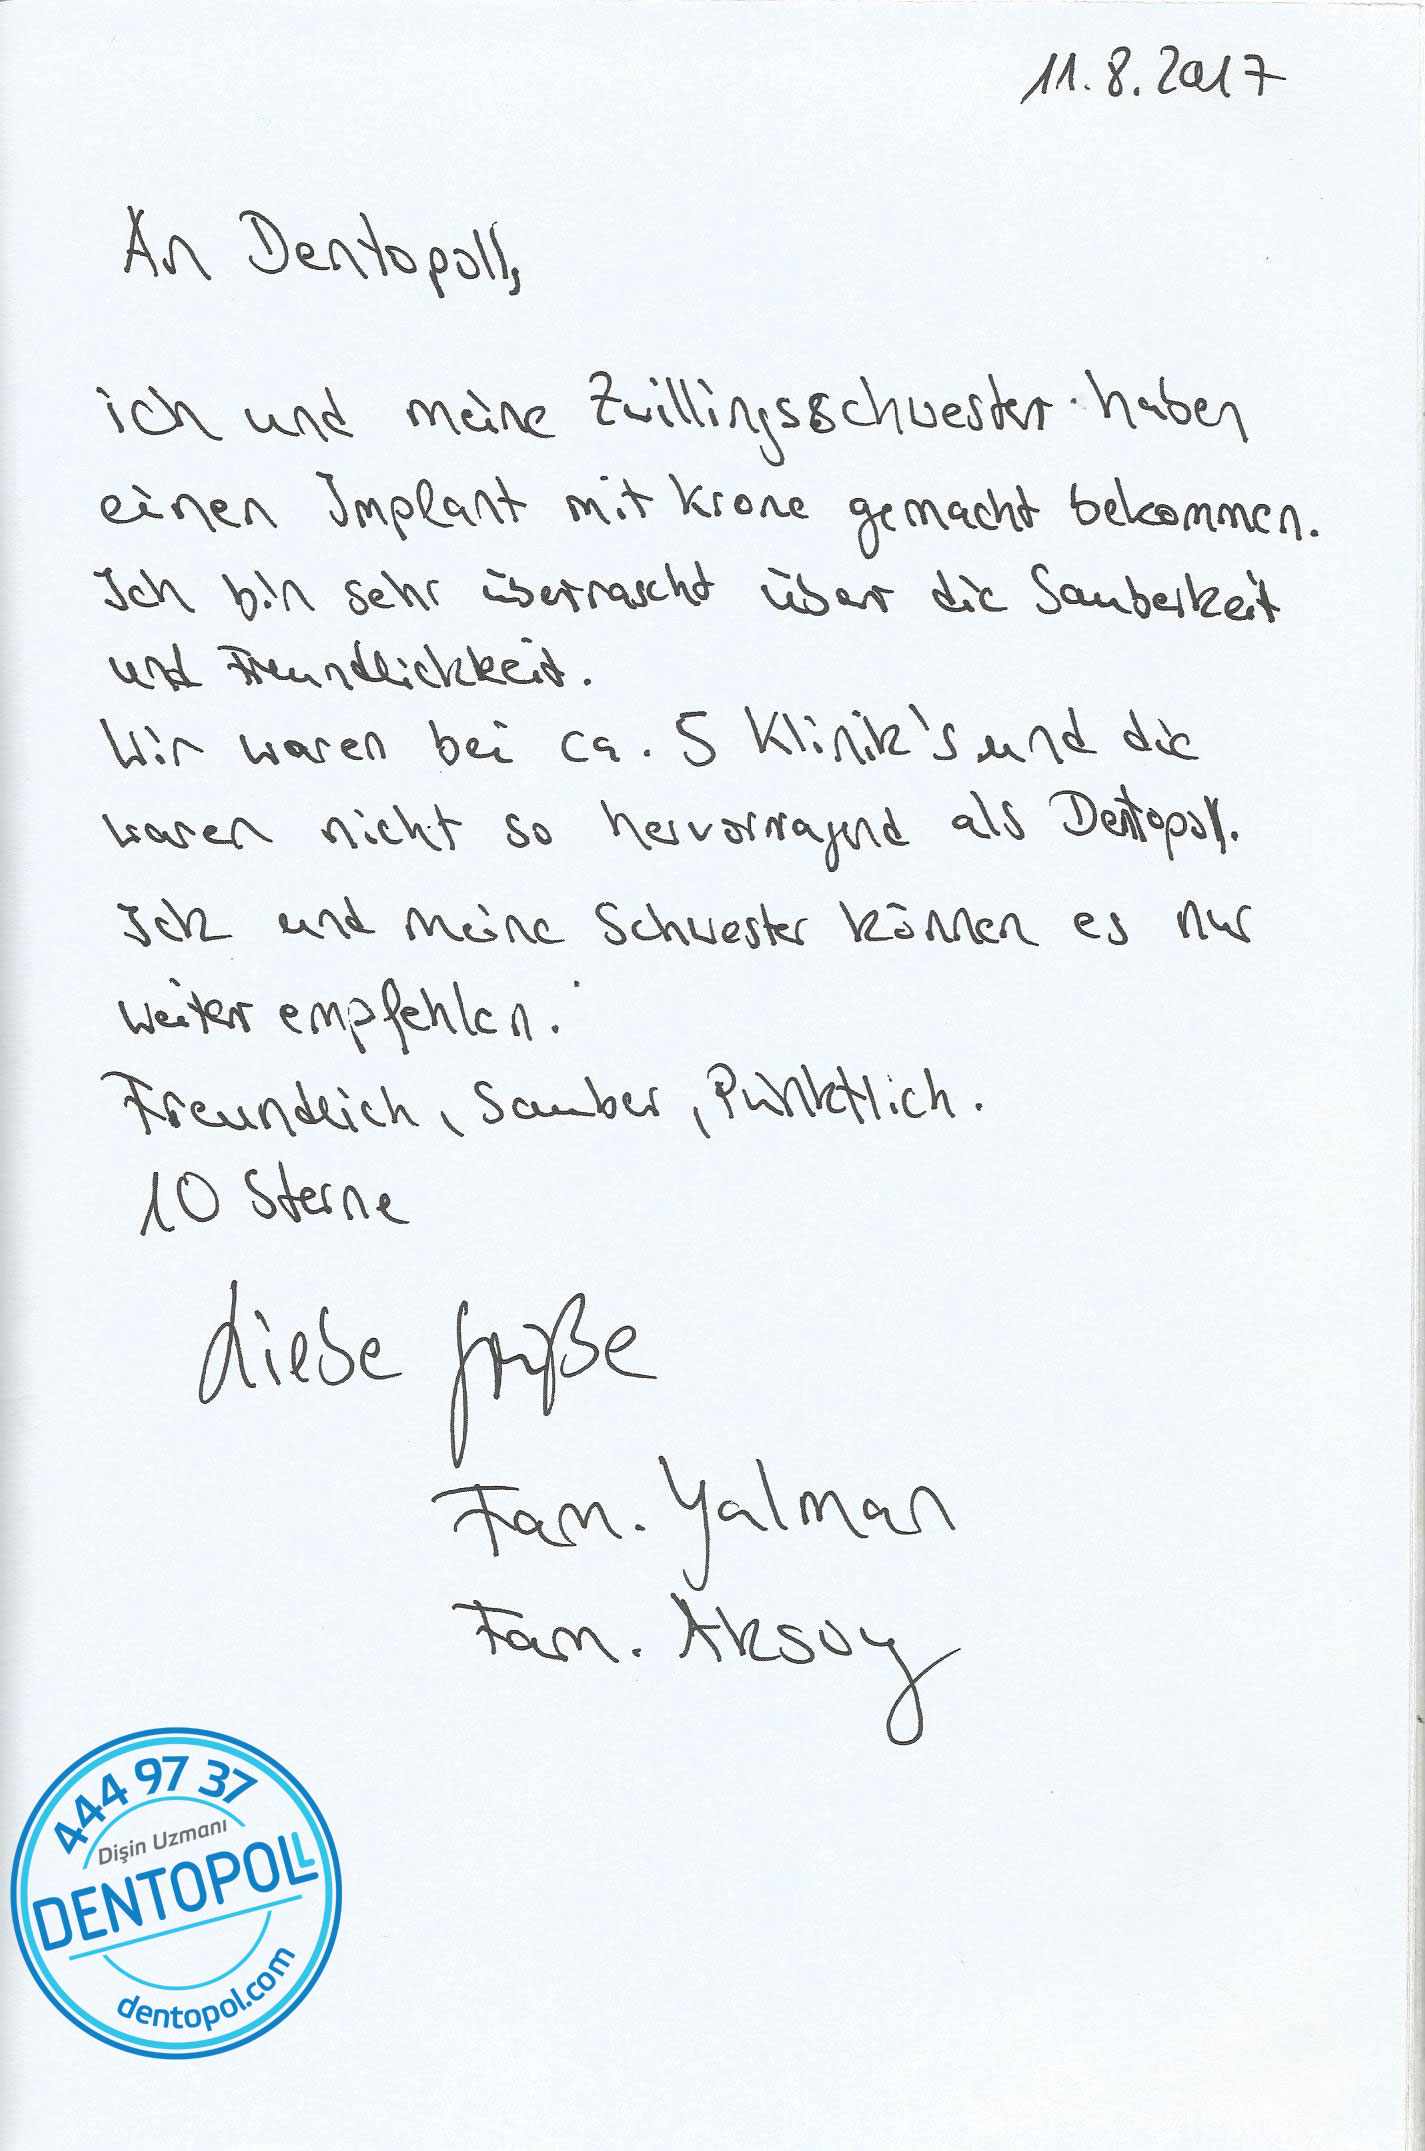 11.8.2017
An Dentopoll,
ich und meine Zwillingsschwester haben
einen Implant mit Krone gemacht bekommen.
Ich bin sehr überrascht über die Sauberkeit
und Freundlickkeit.
Wir waren bei ca. 5 Klinik's und die
waren nicht so hervorragend als Dentopoll.
Ich und meine Schwester können es nur
weiter empfehlen.
Freundlich, Sauber, Pünktlich.
10 Sterne
Liebe Grüße
Fam. Yalman
Fam. Aksoy
444 97 37
Dişin Uzmanı
DENTOPOLL
dentopol.com